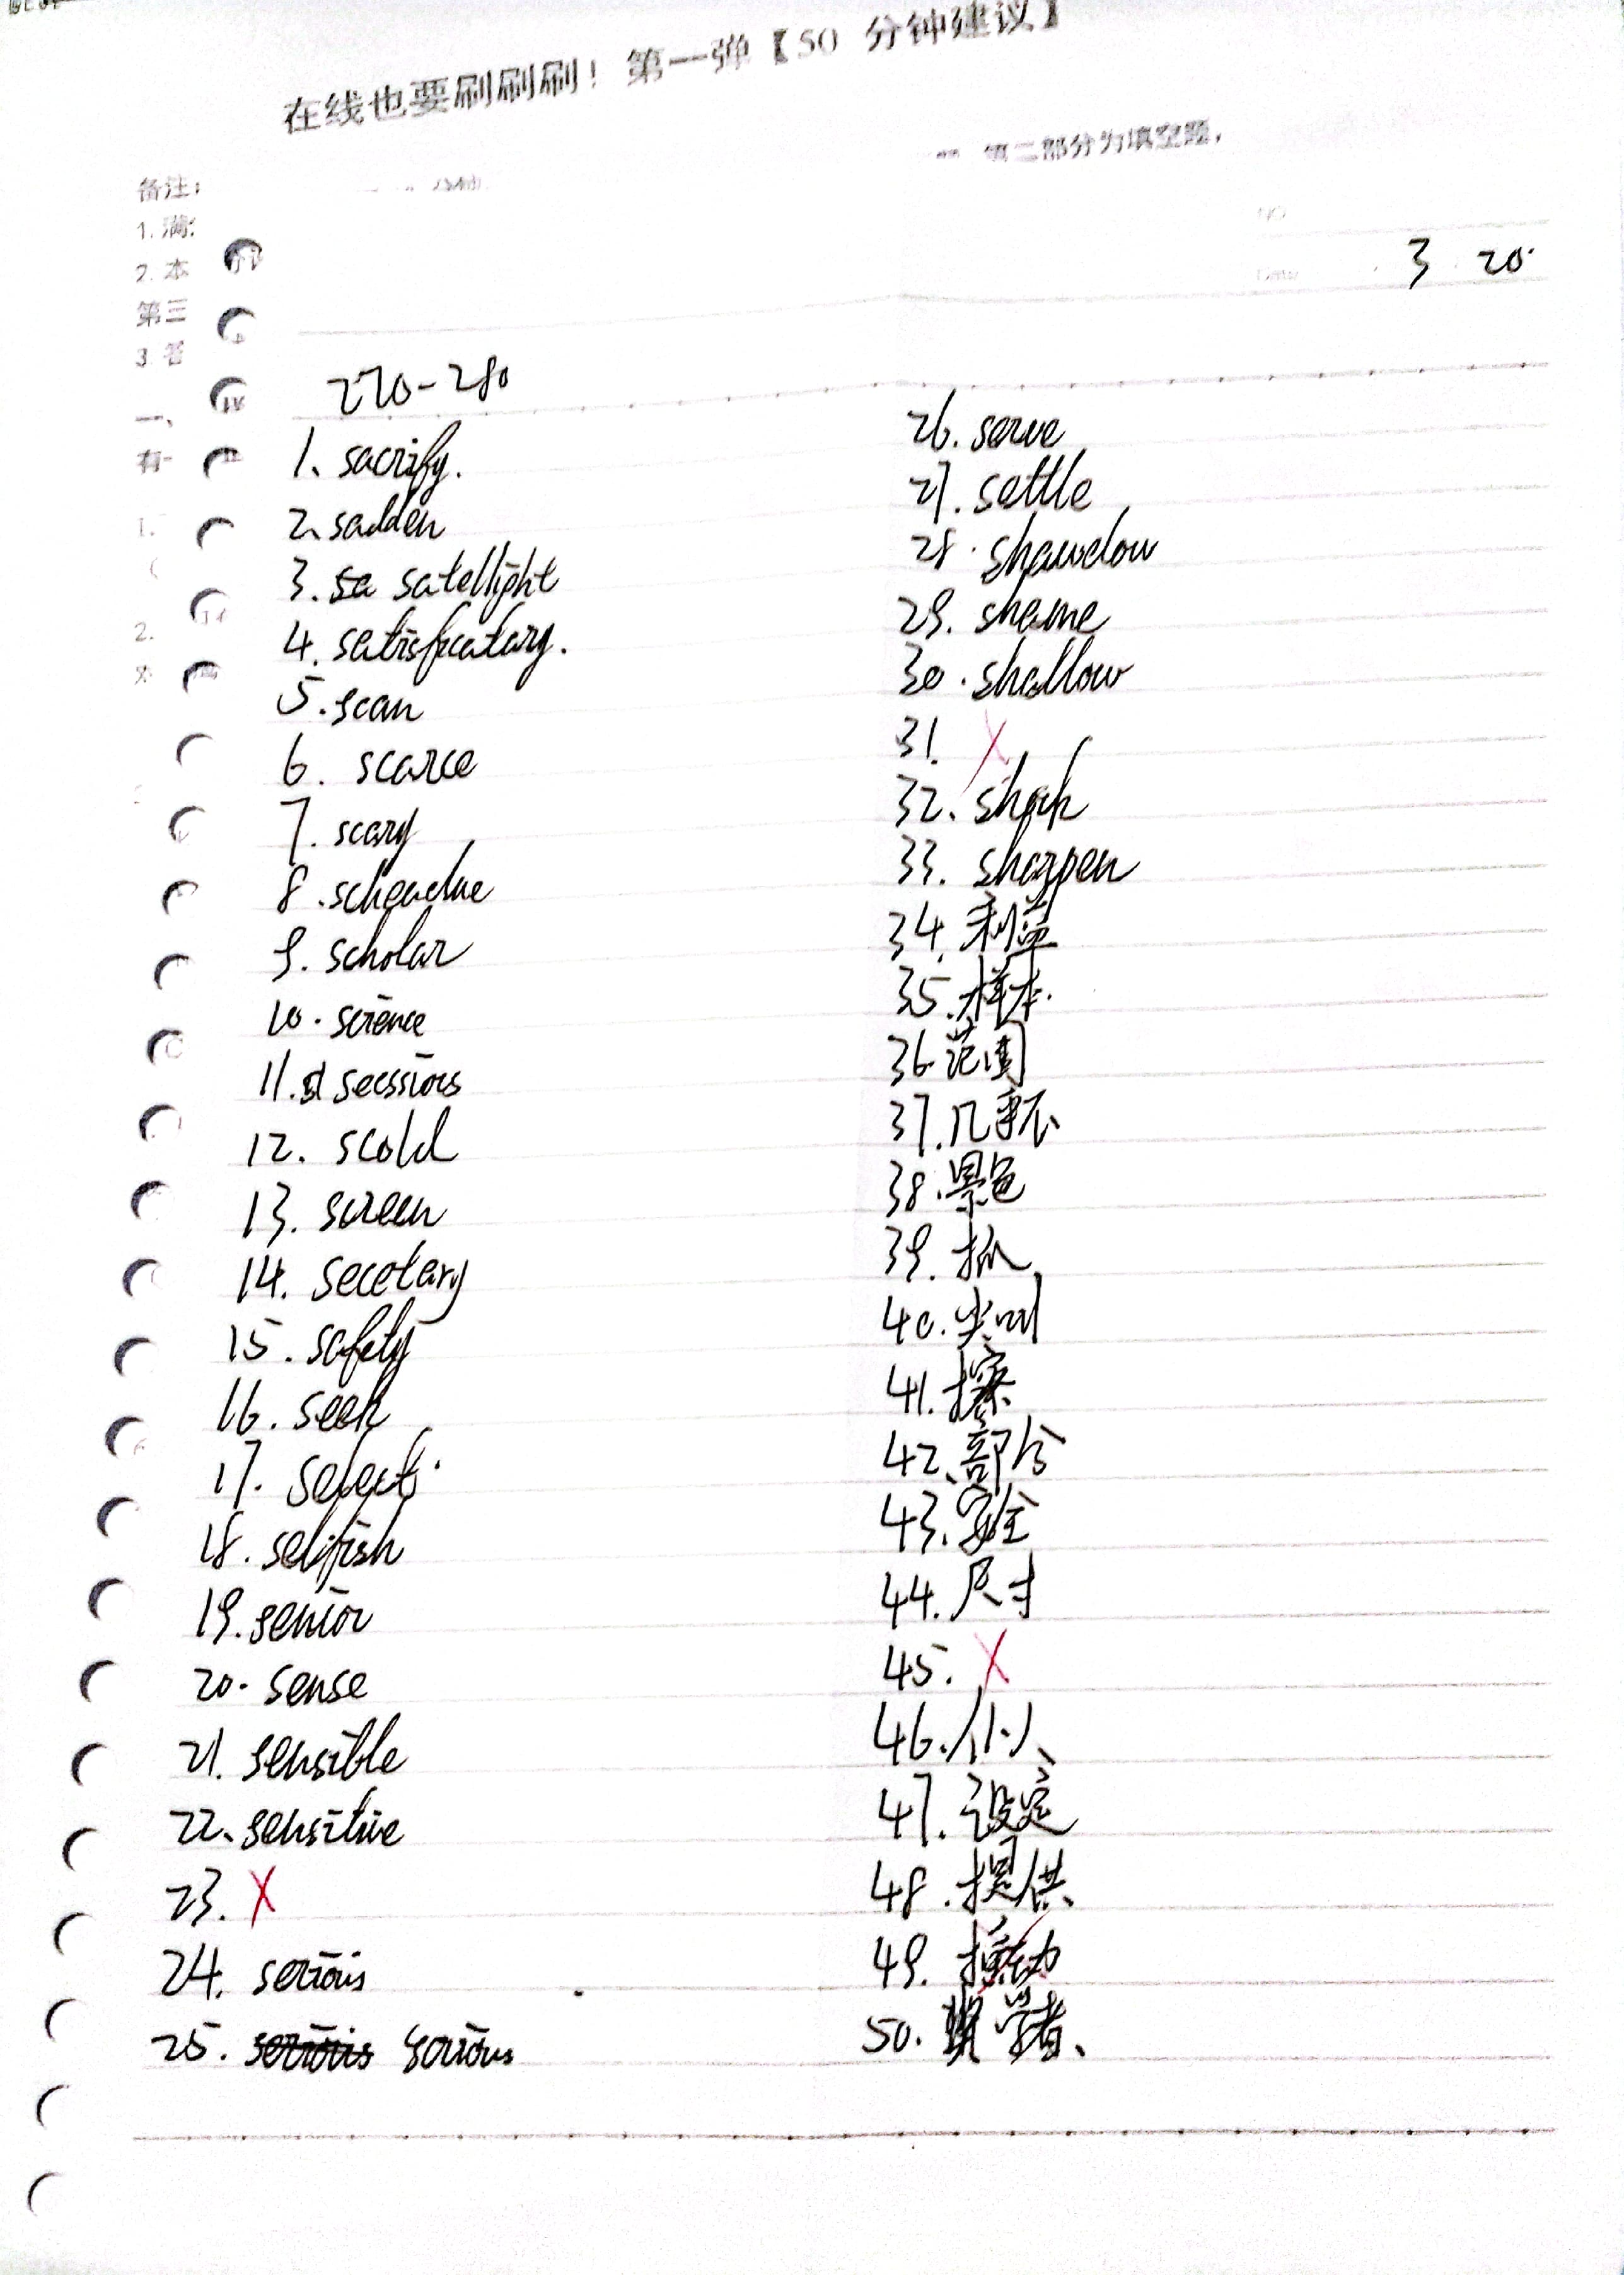 在线也要刷刷刷！第一弹【50 分钟建议】
第二部分为填空题，
备注：
1. 满
2. 本
第三
3. 答
一、
有
1.
2.
NO.
Date
3 20.
270-280
1、sacrify.
2、sadden
3. sa satellight
4. satisfucatary.
5. scan
6. scarce
7. scary
8. scheudue
9. scholar
10. science
11. secssiors
12. scold
13. screen
14. secetary
15. safety
16. seek
17. select.
18. selifish
19. senior
20. sense
21. sensible
22. sensitive
23. X
24. serious
25. serious serious
26. serve
27. settle
28. shawdow
29. shame
30. shallow
31. X
32. shark
33. sharpen
34. 利益
35. 样本.
36. 范围
37. 几乎不
38. 景色
39. 抓
40. 尖叫
41. 擦
42、部分
43. 安全
44. 尺寸
45. X
46.
47. 设定
48. 提供、
49.
50. 学者、